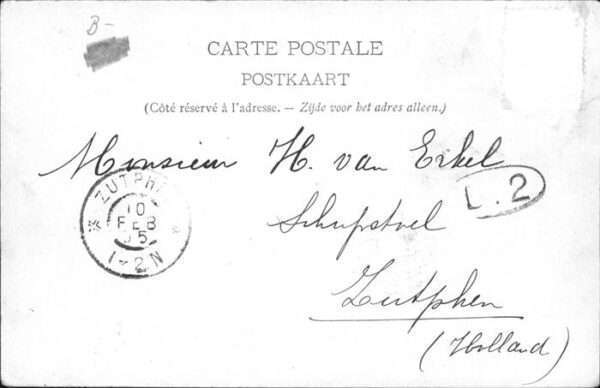 B-
CARTE POSTALE
POSTKAART
(Côté réservé à l'adresse. — Zijde voor het adres alleen.)
Monsieur H. van Erkel
L. 2
ZUTPH
10
FEB
05
1-2N
Zutphen
(Holland)